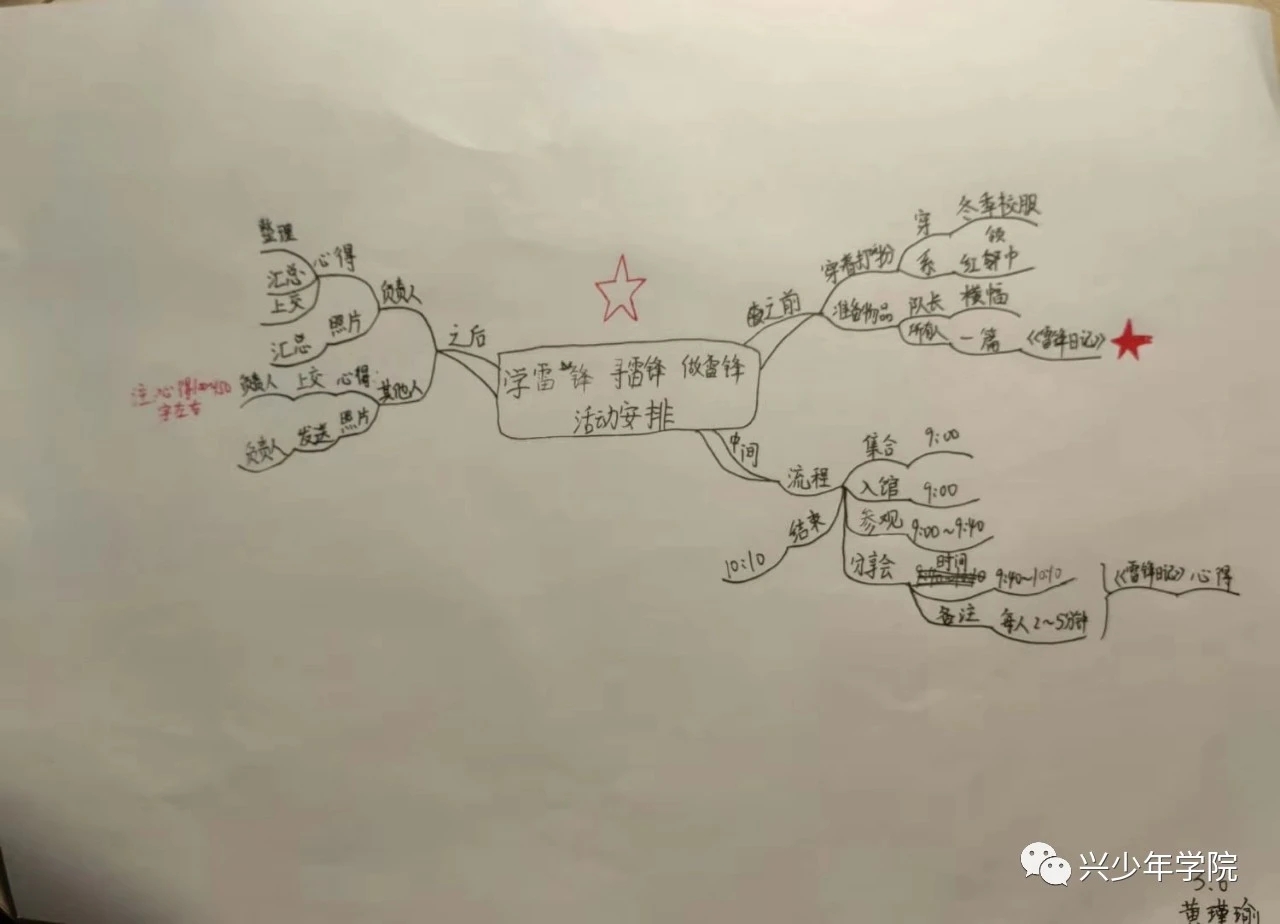 学雷锋 寻雷锋 做雷锋
活动安排
之前
穿着打扮
穿
冬季校服
系
红领巾
准备物品
队长
横幅
所有人
一篇
《雷锋日记》
中间
流程
集合
9:00
入馆
9:00
参观
9:00~9:40
分享会
时间
9:40~10:10
备注
每人2~5分钟
《雷锋日记》心得
结束
10:10
之后
负责人
心得
整理
汇总
上交
照片
汇总
其他人
心得
上交
负责人
注:心得
字左右
照片
发送
负责人
兴少年学院
3.6
黄瑾瑜